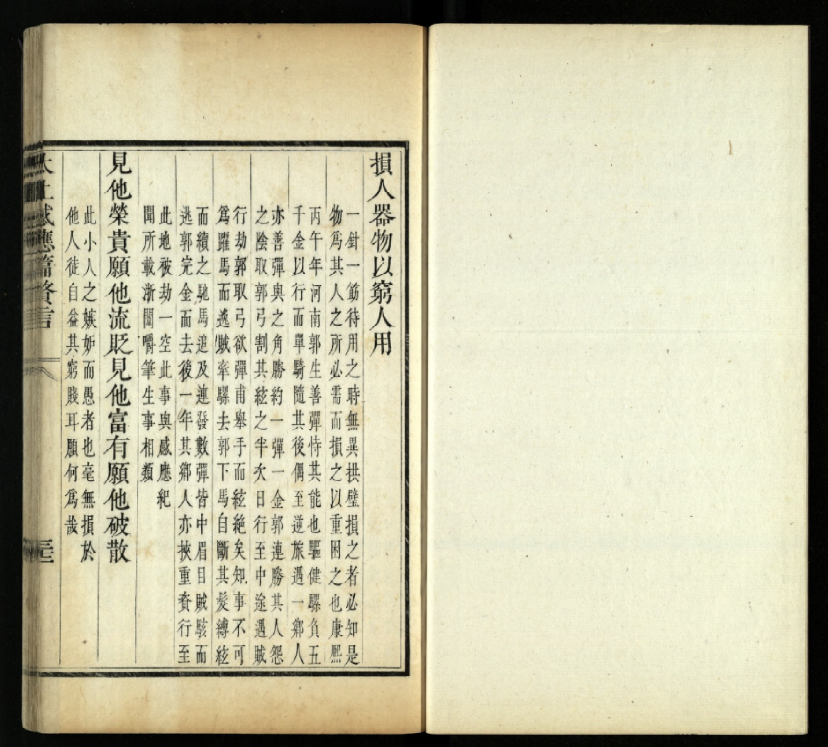 損人器物以窮人用
一針一筯待用之時無異拱璧損之者必知是
物爲其人之所必需而損之以重困之也康熙
丙午年河南郭生善彈恃其能也驅健騾負五
千金以行而單騎隨其後偶至逆旅遇一鄉人
亦善彈與之角勝約一彈一金郭連勝其人怨
之陰取郭弓割其絃之半次日行至中途遇賊
行劫郭取弓欲彈甫舉手而絃絶矣知事不可
爲躍馬而遁賊牽騾去郭下馬自斷其髮縛絃
而續之馳馬追及連發數彈皆中眉目賊駭而
逃郭完金而去後一年其鄉人亦挾重賚行至
此地被劫一空此事與感應紀
聞所載浙閩嚼筆生事相類
見他榮貴願他流貶見他富有願他破散
此小人之嫉妒而愚者也毫無損於
他人徒自益其窮賤耳願何爲哉
太上感應篇贅言
三二